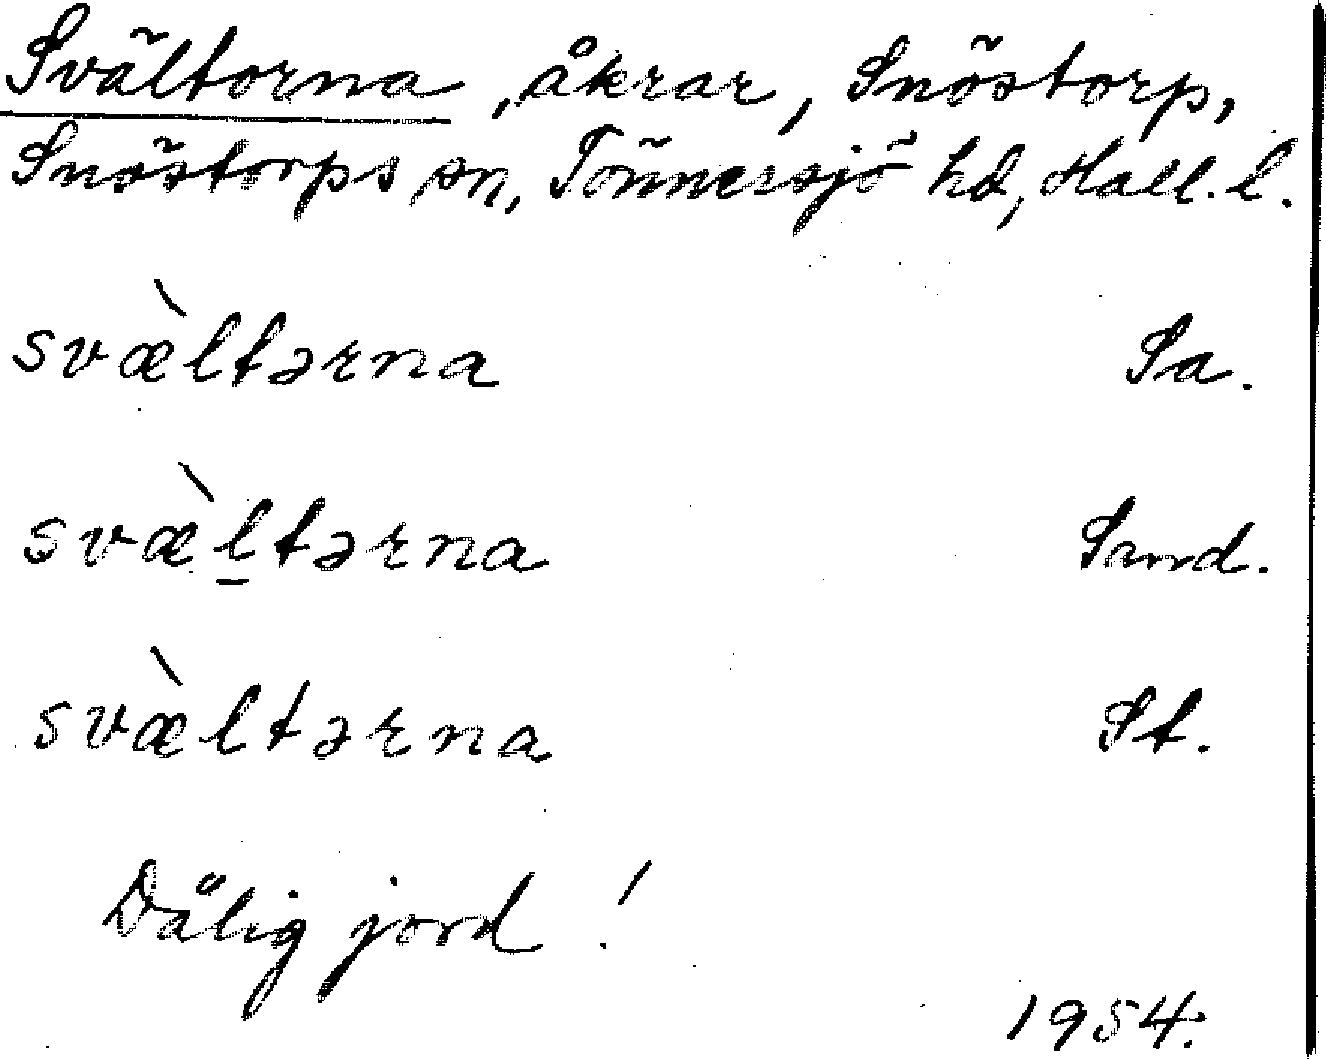 Svältorna, åkrar, Snöstorp,
Snöstorps sn, Tönnersjö hd, Hall. l.
svæ̀ltərna Sa.
svæ̀l̲tərna Sand.
svæ̀ltərna St.
Dålig jord!
1954.